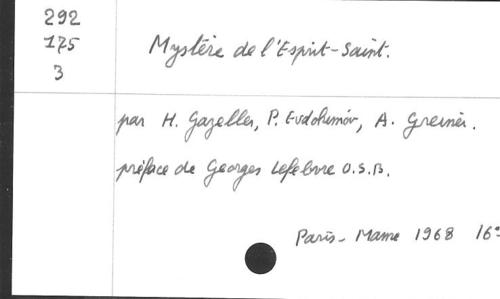 292
175
3
Mystère de l'Esprit-Saint.
par H. Gazelles, P. Evdokimóv, A. Greiner.
préface de Georges Lefebvre O.S.B.
Paris- Mame 1968 16°